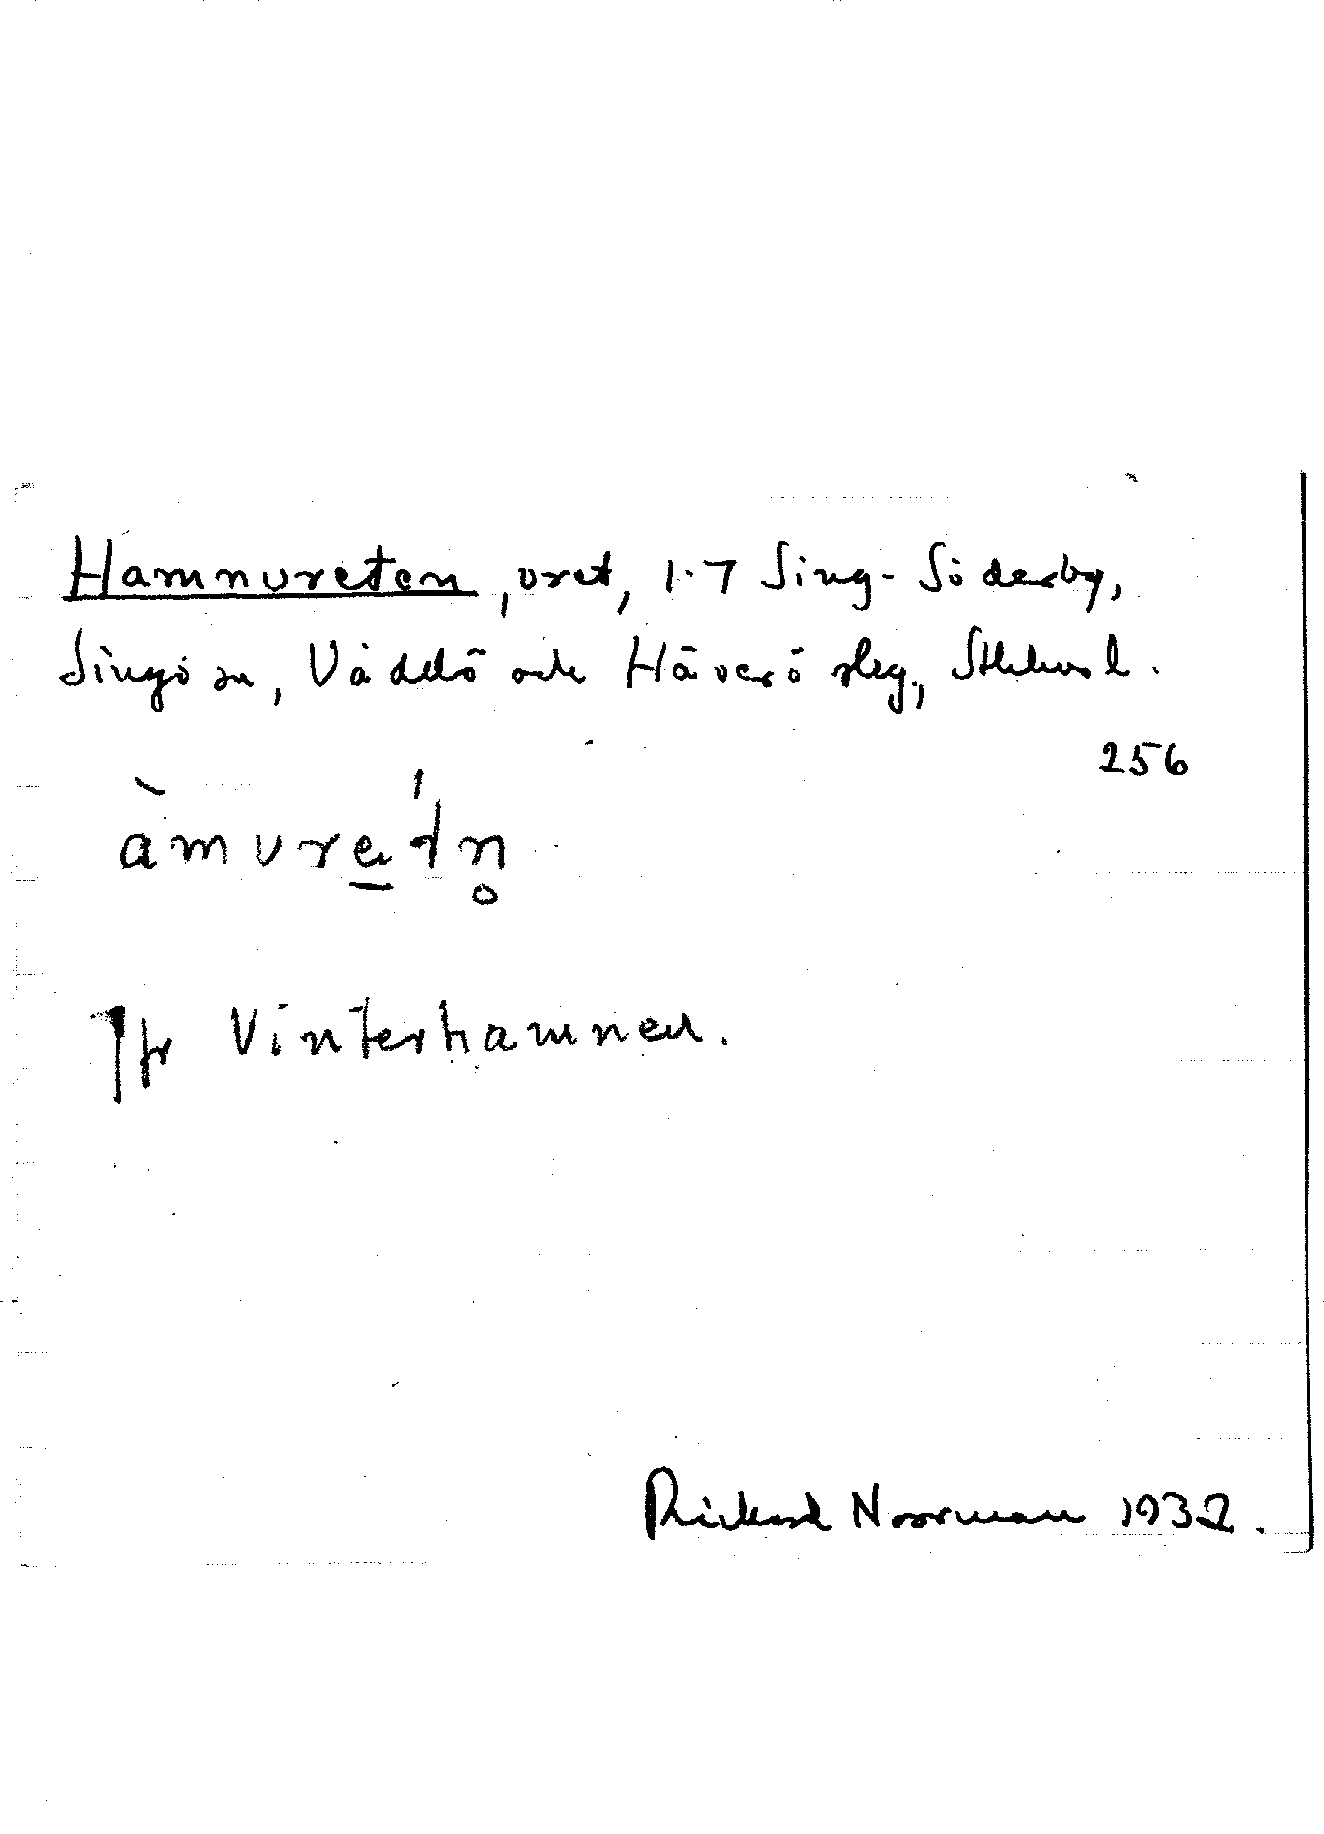 Hamnvreten, vret, 1-7 Sing-Söderby,
Singö sn, Väddö och Häverö slg, Sthlms l.
256
àmvretn̥
Jfr Vinterhamnen.
Rickard Noorman 1932.